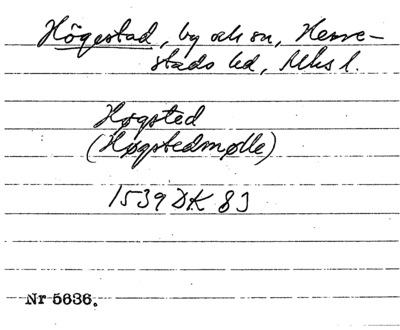 Högestad, by och sn, Herre-
stads hd, Mhs l.
Høgsted
(Høgstedmølle)
1539 DK 83
Nr 5636.